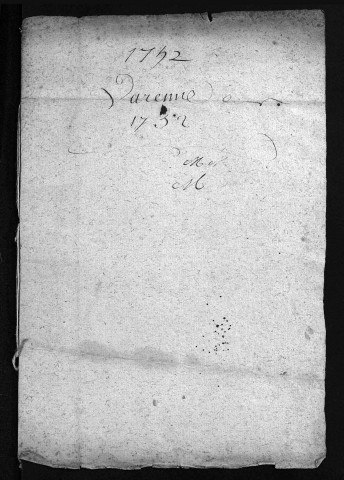 1752
Varenne
1752
M
M